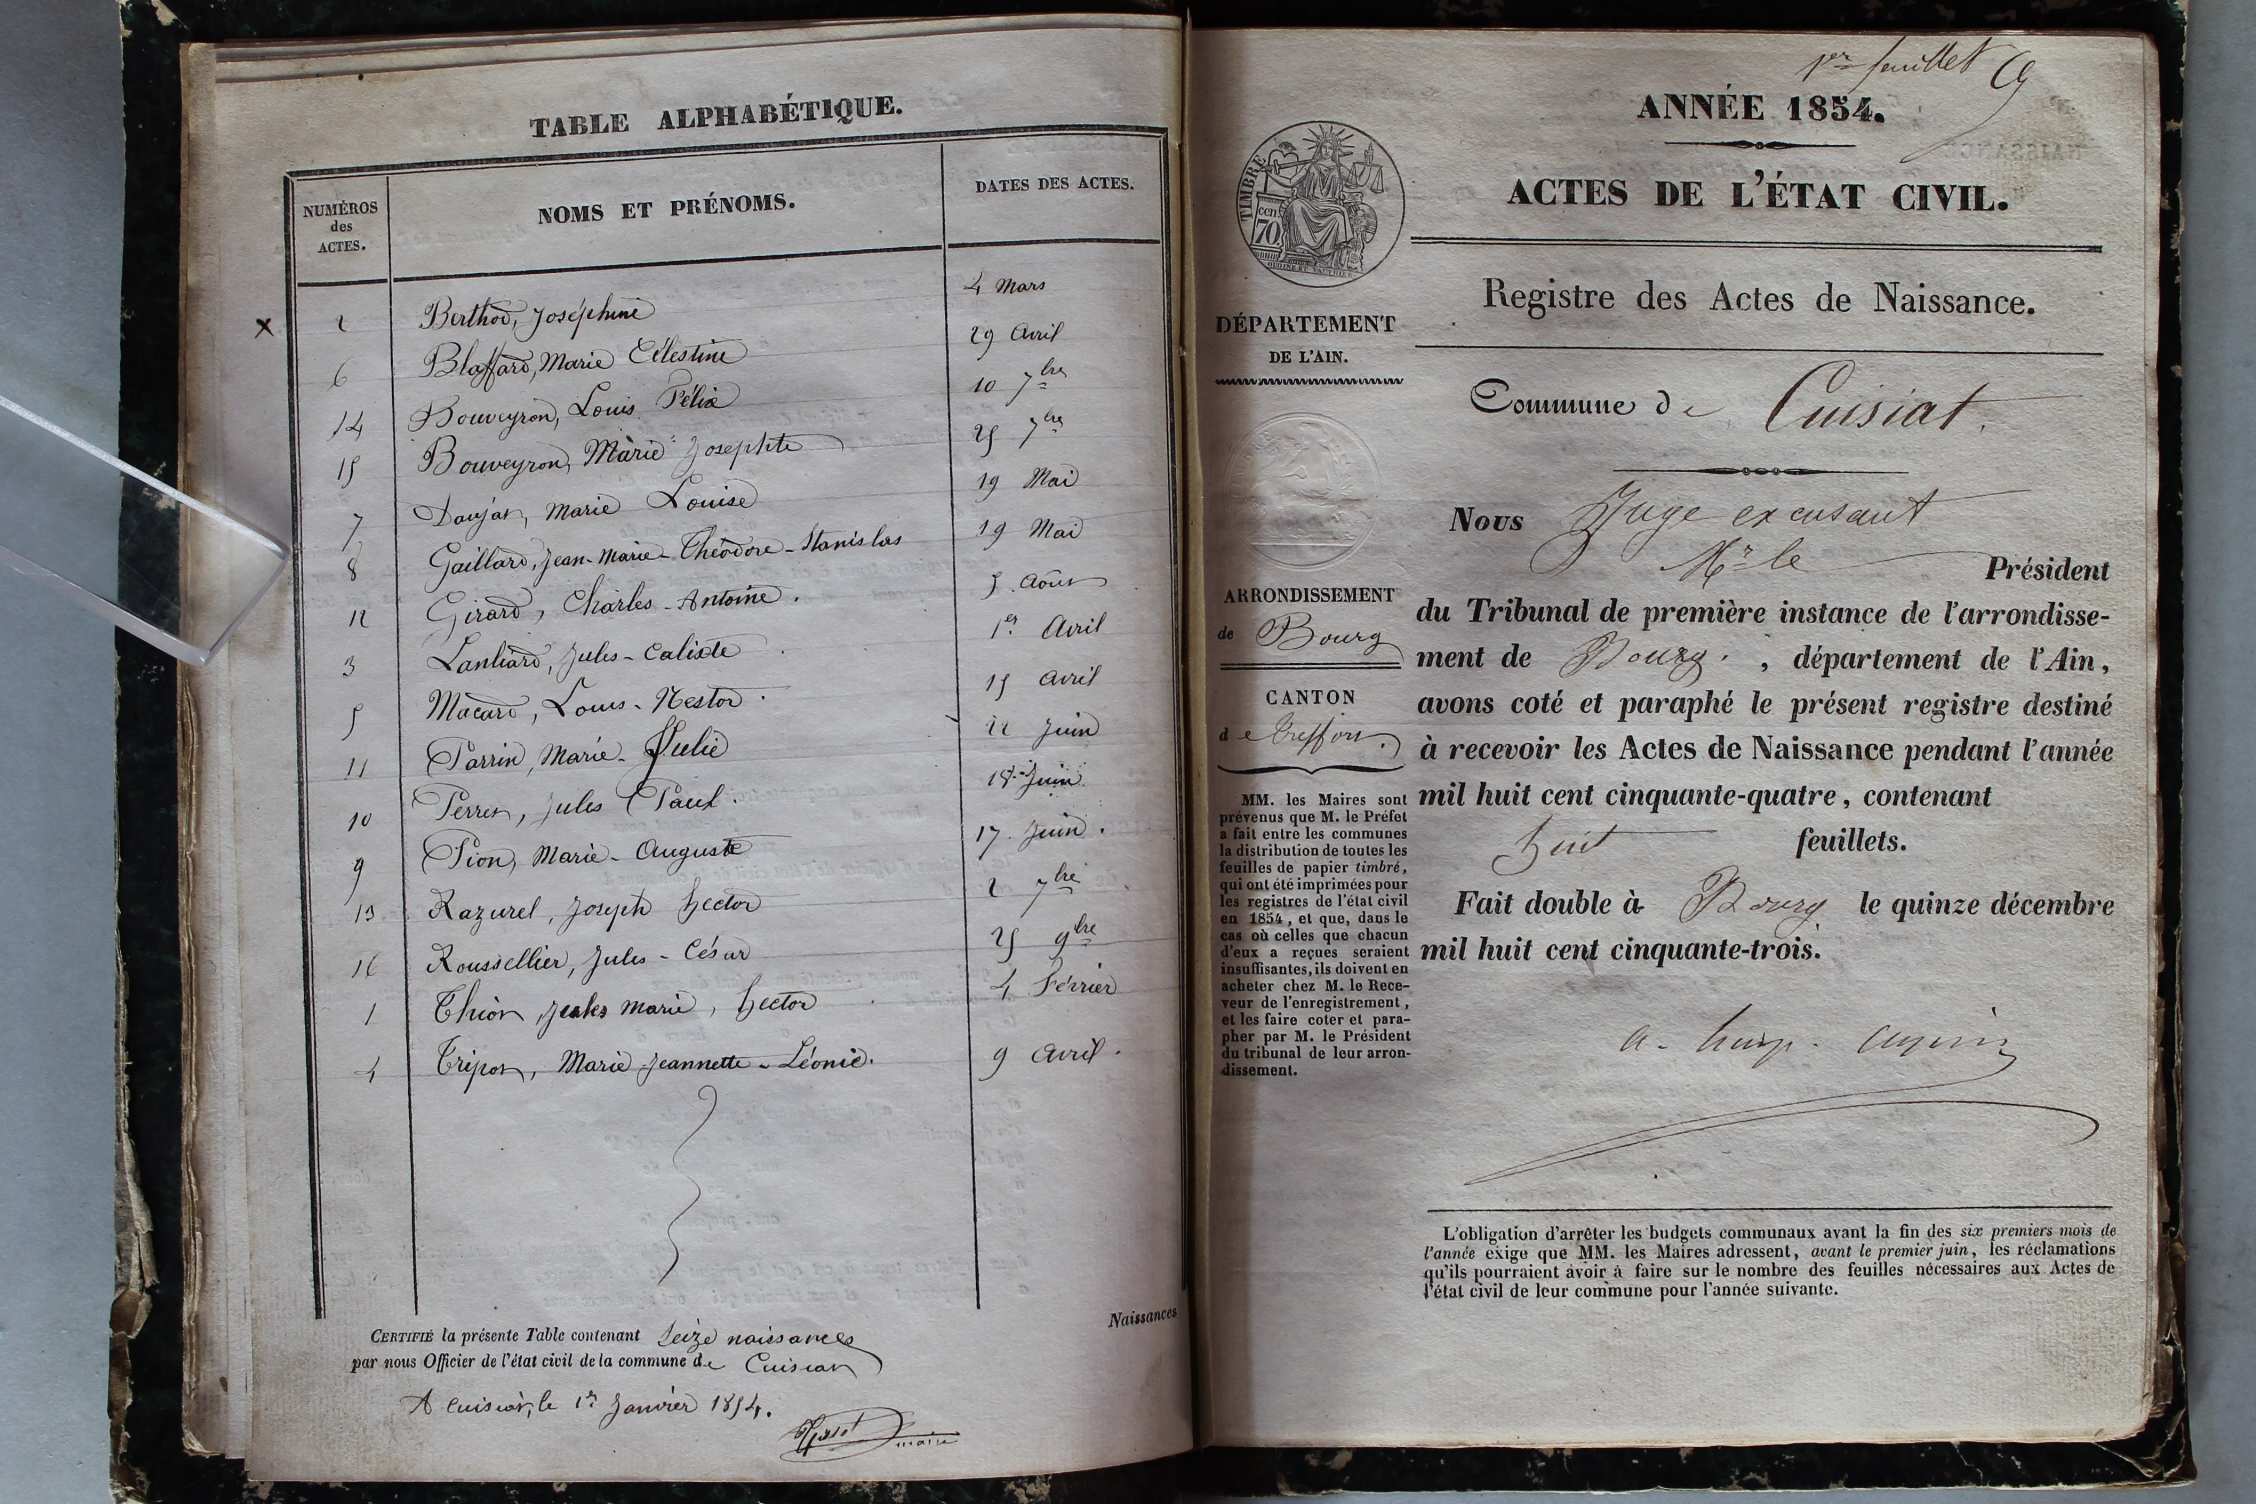 TABLE ALPHABÉTIQUE.
NUMÉROS des ACTES.
NOMS ET PRÉNOMS.
DATES DES ACTES.
x 2 Berthod, Joséphine 4 Mars
6 Blaffard, Marie Célestine 29 Avril
14 Bouveyron, Louis Félix 10 7bre
15 Bouveyron, Marie Josephte 25 7bre
7 Daujat, Marie Louise 19 Mai
8 Gaillard, Jean-Marie-Théodore-Stanislas 19 Mai
12 Girard, Charles-Antoine. 5 Août
3 Lanliard, Jules-Calixte 1er Avril
5 Macard, Louis-Nestor. 15 Avril
11 Parrin, Marie-Julie 22 Juin
10 Perret, Jules Paul. 18 Juin
9 Pion, Marie-Auguste 17 Juin.
13 Razurel, Joseph Hector 2 7bre
16 Roussellier, Jules-César 25 9bre
1 Thion, Jules Marie, Hector 4 Février
4 Tripot, Marie Jeannette-Léonie. 9 Avril.
Naissances
CERTIFIÉ la présente Table contenant seize naissances
par nous Officier de l'état civil de la commune de Cuisiat
A Cuisiat, le 1er Janvier 1854.
maire
1er feuillet
ANNÉE 1854.
ACTES DE L'ÉTAT CIVIL.
TIMBRE
cen
70
Registre des Actes de Naissance.
DÉPARTEMENT
DE L'AIN.
Commune de Cuisiat.
Nous Juge excusant
Mr le Président
du Tribunal de première instance de l'arrondisse-
ment de Bourg, département de l'Ain,
avons coté et paraphé le présent registre destiné
à recevoir les Actes de Naissance pendant l'année
mil huit cent cinquante-quatre, contenant
huit feuillets.
Fait double à Bourg le quinze décembre
mil huit cent cinquante-trois.
ARRONDISSEMENT
de Bourg
CANTON
de Treffort.
MM. les Maires sont
prévenus que M. le Préfet
a fait entre les communes
la distribution de toutes les
feuilles de papier timbré,
qui ont été imprimées pour
les registres de l'état civil
en 1854, et que, dans le
cas où celles que chacun
d'eux a reçues seraient
insuffisantes, ils doivent en
acheter chez M. le Rece-
veur de l'enregistrement,
et les faire coter et para-
pher par M. le Président
du tribunal de leur arron-
dissement.
L'obligation d'arrêter les budgets communaux avant la fin des six premiers mois de
l'année exige que MM. les Maires adressent, avant le premier juin, les réclamations
qu'ils pourraient avoir à faire sur le nombre des feuilles nécessaires aux Actes de
l'état civil de leur commune pour l'année suivante.